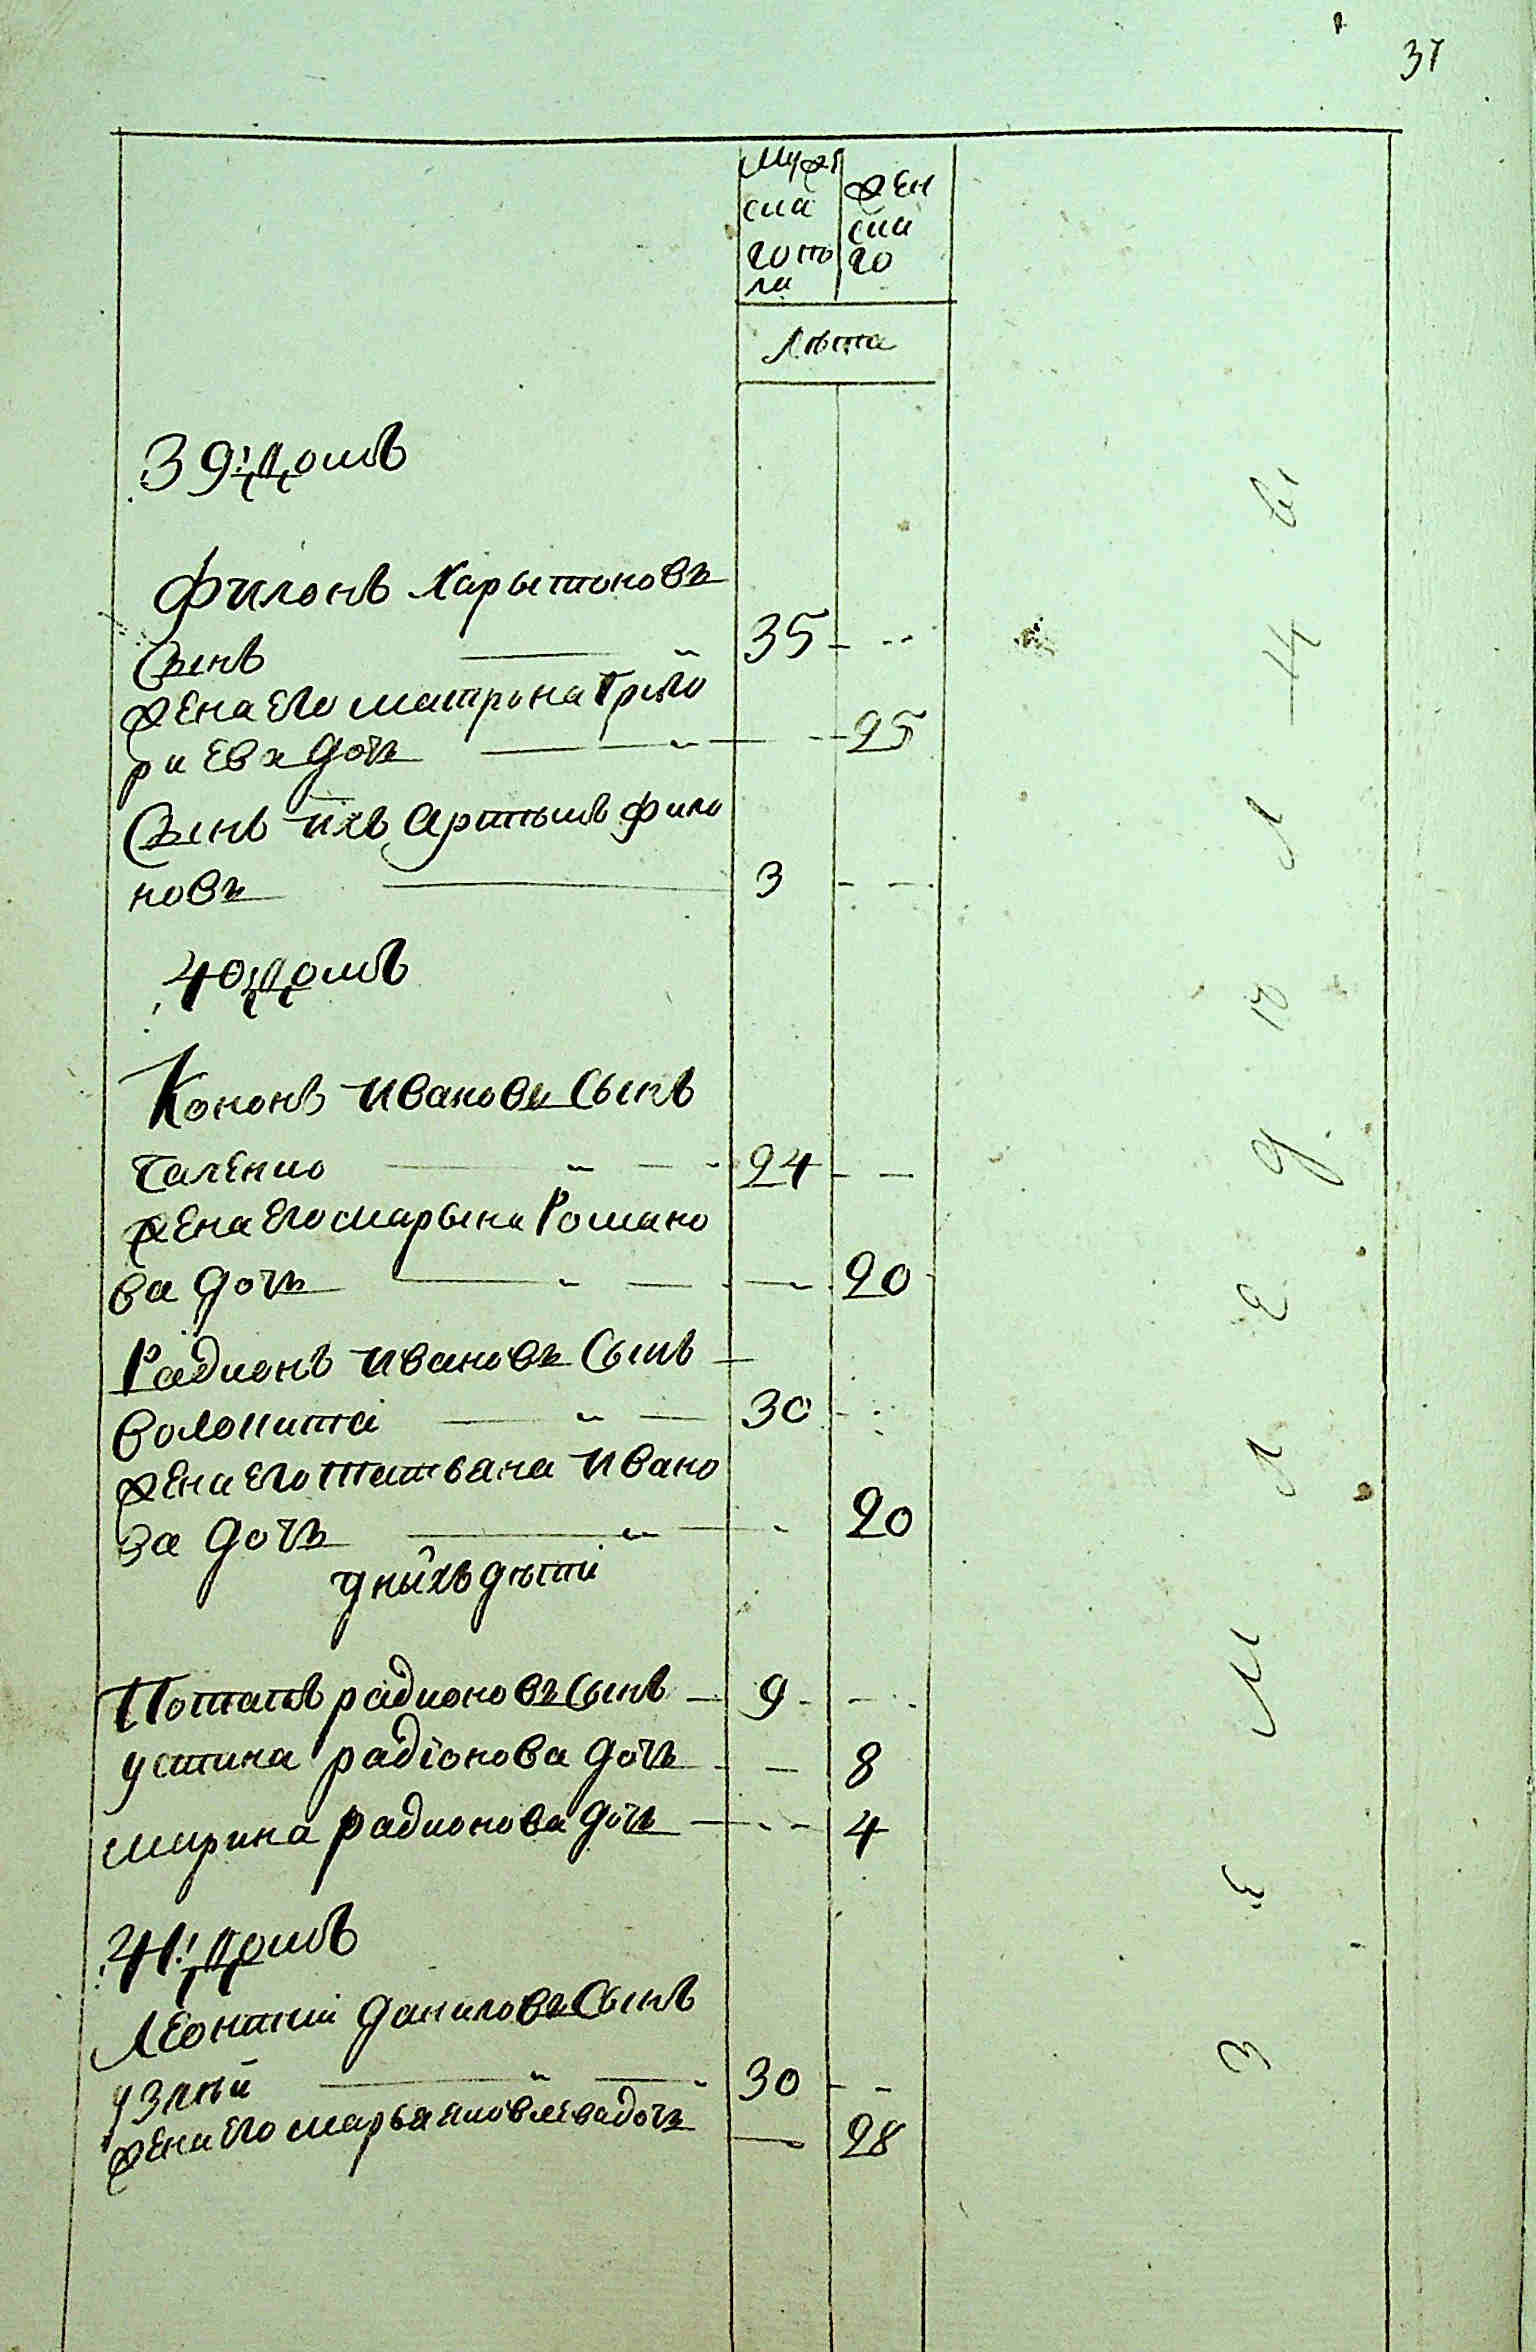 37
Мужс
ска
го по
ла
жен
ска
го
Лѣта
39: Домъ
Филонъ Харытоновъ
Сынъ 35
жена его матрона Григо
риева дочъ 25
Сынъ ихъ Артымъ фило
новъ 3
40: Домъ
Кононъ Ивановъ Сынъ
Галенко 24
жена его марына Романо
ва дочъ 20
Радионъ Ивановъ Сынъ
волокита 30
жена его татьяна Ивано
ва дочъ 20
у ныхъ дѣти
Потапъ радионовъ Сынъ 9
устина радіонова дочъ 8
мирина радионова дочъ 4
41: Домъ
Леонтий даниловъ Сынъ
30
жена его марья яковлева дочъ 28
З е м л е д ѣ л ц ы